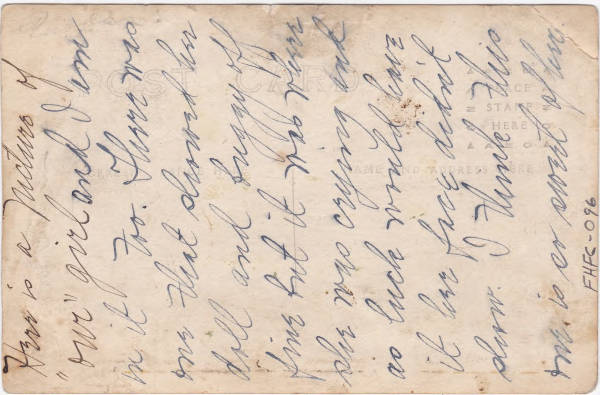 Here is a picture of
"our" girl and I am
in it too. There was
one that showed her
doll and buggy off
fine but it was where
she was crying and
as luck would have
it her face didn't
show. I think this
one is so sweet of her
POST CARD
PLACE
STAMP
HERE
NAME AND ADDRESS HERE
FHFC-096